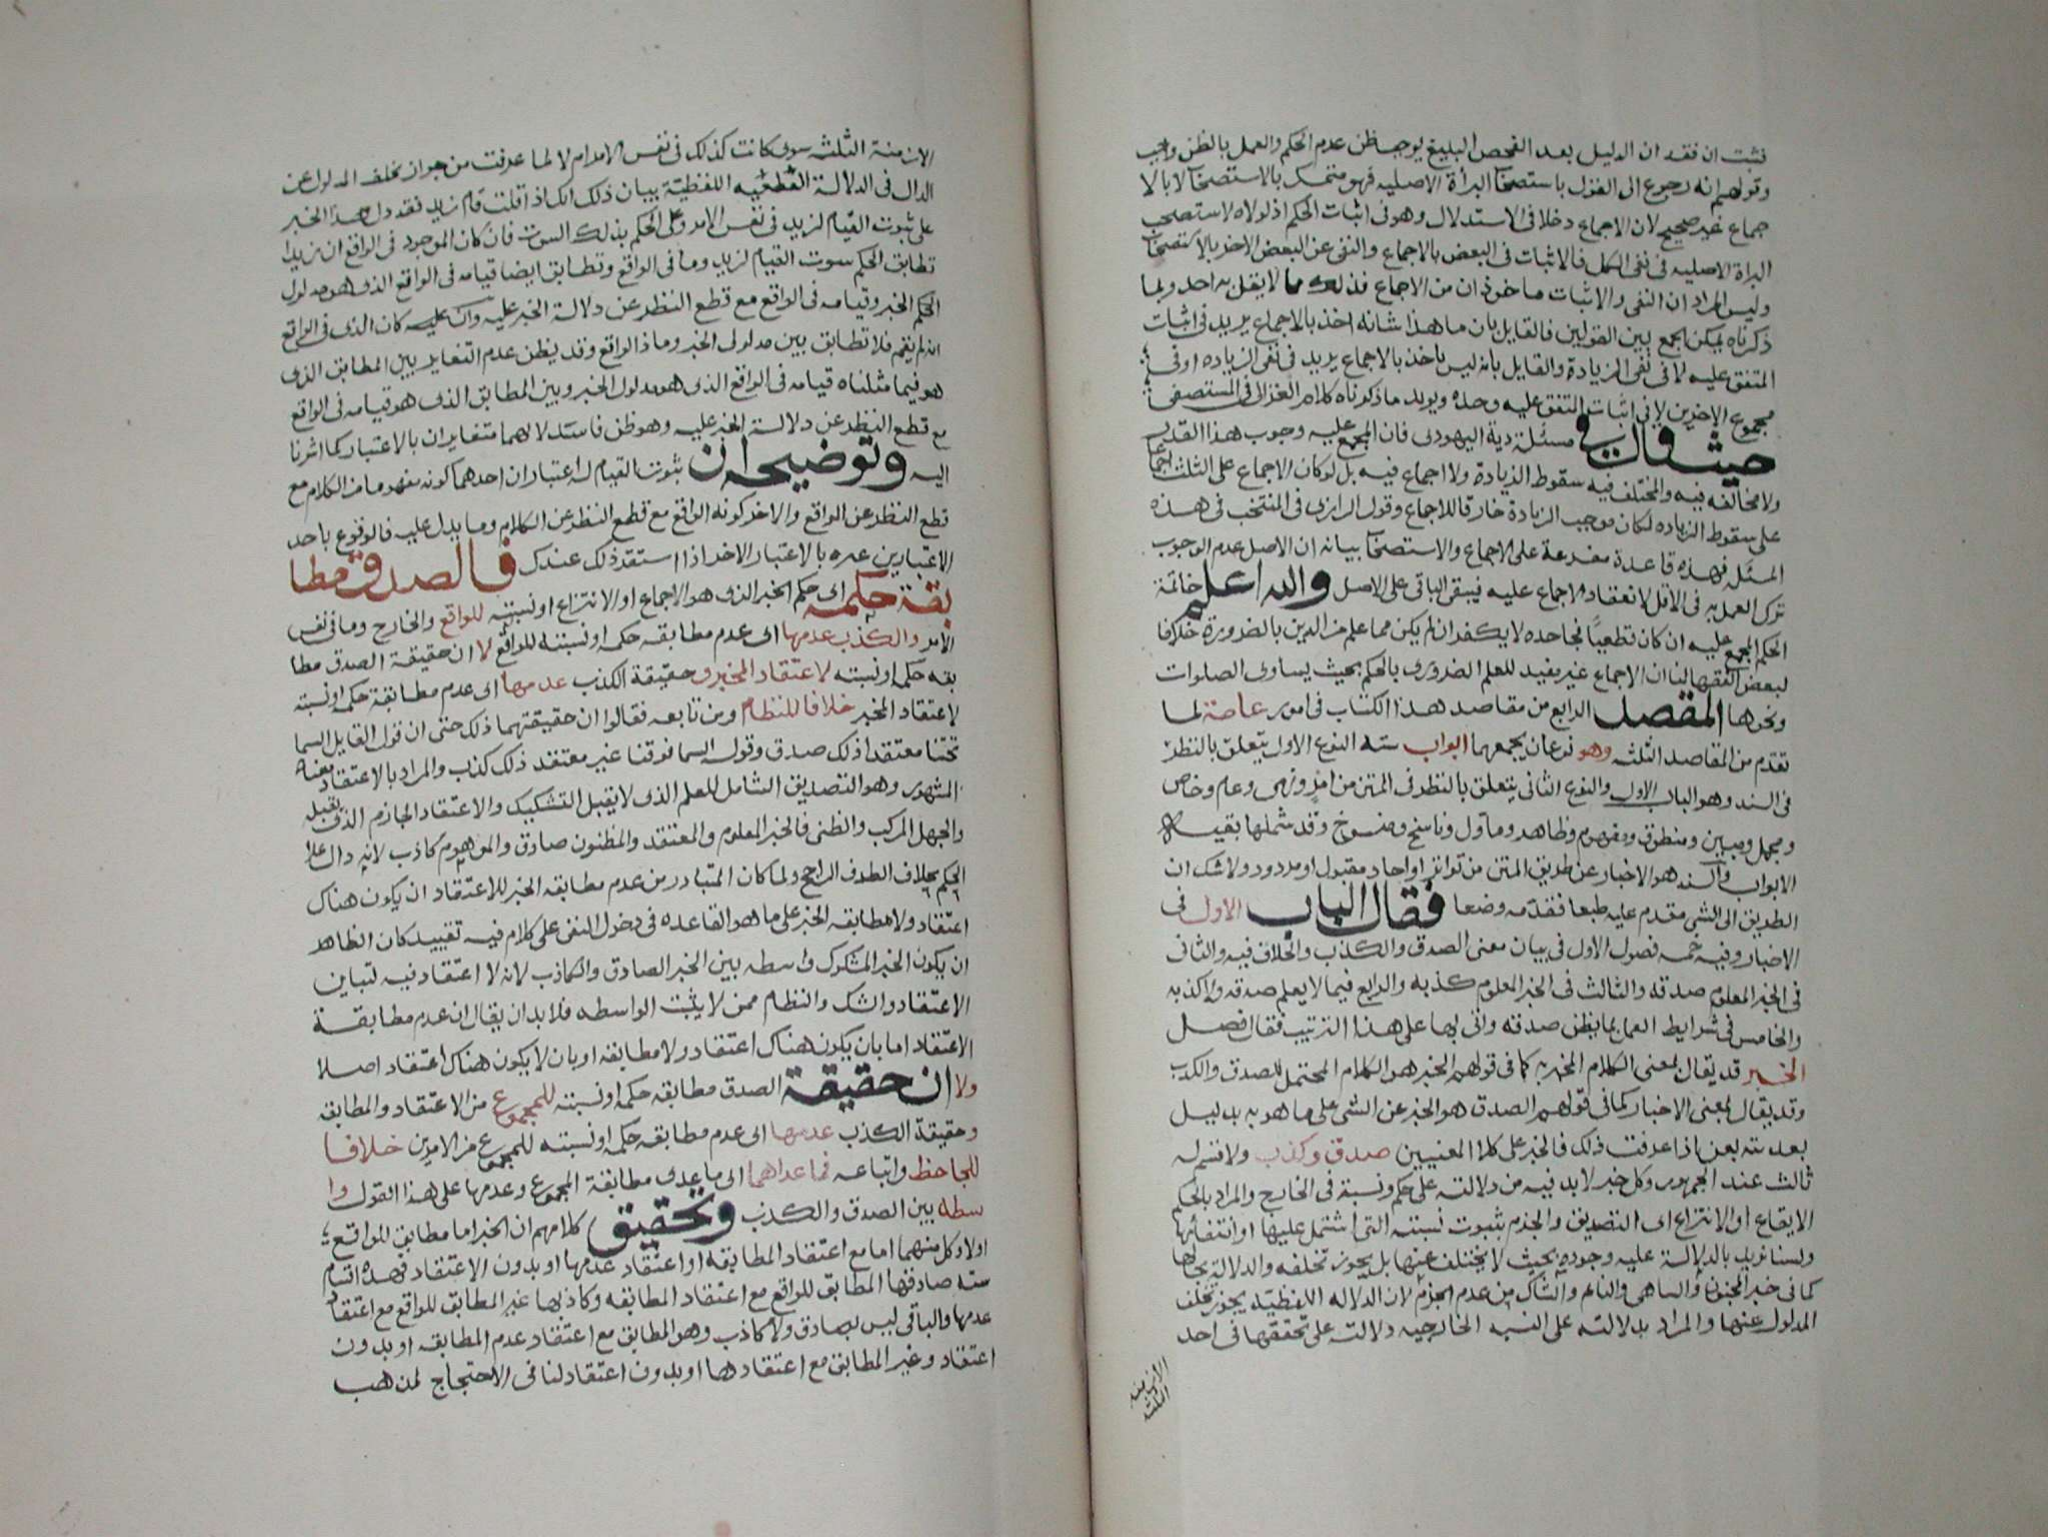 نثبت ان فقد ان الدليل بعد الفحص البليغ يوجب ظن عدم الحكم والعمل بالظن واجب
وقولهم انه رجوع الى القول باستصحاب البرأة الاصليه فهو متمسك بالاستصحاب لا بالا
جماع غير صحيح لان الاجماع دخلا فى الاستدلال وهو فى اثبات الحكم اذ لولاه لاستصحب
البراة الاصليه فى نفى الكل فالاثبات فى البعض بالاجماع والنفى عن البعض الاخر بالاستصحاب
وليس المراد ان النفى والاثبات ماخوذان من الاجماع فذلك مما لا يقل به احد وبما
ذكرناه يمكن الجمع بين القولين فالقايل بان ما هذا شانه اخذ بالاجماع يريد فى اثبات
المتفق عليه لا فى نفى الزيادة والقايل بانه ليس باخذ بالاجماع يريد فى نفى الزياده او فى
مجموع الاخرين لا فى اثبات المتفق عليه وحده ويويد ما ذكرناه كلام الغزالى فى المستصفى
حيث قال فى مسئلة دية اليهودى فان المجمع عليه وجوب هذا القدر
ولا مخالفه فيه والمختلف فيه سقوط الزيادة ولا اجماع فيه بل لو كان الاجماع على الثلث اجماعا
على سقوط الزياده لكان موجب الزيادة خارقا للاجماع وقول الرازى فى المنتخب فى هذه
المسئله فهذه قاعدة مفرعة على الاجماع والاستصحاب بيانه ان الاصل عدم الوجوب
ترك العمل به فى الاقل لانعقاد الاجماع عليه فيبقى الباقى على الاصل والله اعلم خاتمة
الحكم المجمع عليه ان كان قطعيا فجاحده لا يكفر ان لم يكن مما علم من الدين بالضرورة خلافا
لبعض الفقها لنا ان الاجماع غير يفيد للعلم الضرورى بالحكم بحيث يساوى الصلوات
ونحوها المقصد الرابع من مقاصد هذا الكتاب فى امور عامة لما
تقدم من المقاصد الثلثه وهو نوعان يجمعهما ابواب سته النوع الاول يتعلق بالنظر
فى السند وهو الباب الاول والنوع الثانى يتعلق بالنظر فى المتن من امر ونهى وعام وخاص
ومجمل ومبين ومنطوق ومفهوم وظاهر وماول وناسخ ومنسوخ وقد شملها بقيه
الابواب والسند هو الاخبار عن طريق المتن من تواتر او احاد مقبول او مردود ولا شك ان
الطريق الى الشى مقدم عليه طبعا فقدمه وضعا فقال الباب الاول فى
الاخبار وفيه خمسه فصول الاول فى بيان معنى الصدق والكذب والخلاف فيه والثانى
فى الخبر المعلوم صدقه والثالث فى الخبر المعلوم كذبه والرابع فيما لا يعلم صدقه ولا كذبه
والخامس فى شرايط العمل بما يظن صدقه واتى بها على هذا الترتيب فقال فصل
الخبر قد يقال لمعنى الكلام المخبر به كما فى قولهم الخبر هو الكلام المحتمل للصدق والكذب
وقد يقال لمعنى الاخبار كما فى قولهم الصدق هو الخبر عن الشى على ما هو به بدليل
بعديته بعن اذا عرفت ذلك فالخبر على كلا المعنيين صدق وكذب ولا قسم له
ثالث عند الجمهور وكل خبر لا بد فيه من دلالته على حكم ونسبة فى الخارج والمراد بالحكم
الايقاع او الانتزاع اى التصديق والجزم بثبوت نسبته التى اشتمل عليها او انتفائها
ولسنا نريد بالدلالة عليه وجوده بحيث لا يختلف عنها بل يجوز تخلفه والدلالة بحالها
كما فى خبر المجنون والساهى والنائم والشاك من عدم الجزم لان الدلاله اللفظيه يجوز تخلف
المدلول عنها والمراد بدلالته على النسبه الخارجيه دلالته على تحققها فى احد
الازمنه
الثلثه
الازمنة الثلثه سوى كانت كذلك فى نفس الامر ام لا لما عرفت من جواز تخلف المدلول عن
الدال فى الدلالة القطعيه اللفظية بيان ذلك انك اذا قلت قام زيد فقد دل هذا الخبر
على ثبوت القيام لزيد فى نفس الامر وعلى الحكم بذلك الثبوت فان كان الموجود فى الواقع ان زيدا
تطابق الحكم بثبوت القيام لزيد وما فى الواقع وتطابق ايضا قيامه فى الواقع الذى هو مدلول
الحكم الخبر وقيامه فى الواقع مع قطع النظر عن دلالة الخبر عليه وان كان الذى فى الواقع
انه لم يقم فلا تطابق بين مدلولى الخبر وما ذا الواقع وقد يظن عدم التغاير بين المطابق الذى
هو فيما مثلناه قيامه فى الواقع الذى هو مدلول الخبر وبين المطابق الذى هو قيامه فى الواقع
مع قطع النظر عن دلالة الخبر عليه وهو ظن فاسد لانهما متغايران بالاعتبار كما اشرنا
اليه وتوضيحه ان ثبوت القيام له اعتباران احدهما كونه مفهوما من الكلام مع
قطع النظر عن الواقع والاخر كونه الواقع مع قطع النظر عن الكلام وما يدل عليه فالوقوع باحد
الاعتبارين غيره بالاعتبار الاخر اذا استقر ذلك عندك فالصدق مطا
بقة حكمه اى حكم الخبر الذى هو الاجماع او الانتزاع او نسبته للواقع والخارج وما فى نفس
الامر والكذب عدمها اى عدم مطابقه حكمه او نسبته للواقع لا ان حقيقة الصدق مطا
بقه حكمه او نسبته لاعتقاد المخبر وحقيقة الكذب عدمها اى عدم مطابقة حكمه او نسبته
لاعتقاد المخبر خلافا للنظام ومن تابعه فقالوا ان حقيقتهما ذلك حتى ان قول القايل السما
تحتنا معتقدا ذلك صدق وقوله السما فوقنا غير معتقد ذلك كذب والمراد بالاعتقاد معناه
المشهور وهو التصديق الشامل للعلم الذى لا يقبل التشكيك والاعتقاد الجازم الذى يقبله
والجهل المركب والظنى فالخبر المعلوم والمعتقد والمظنون صادق والموهوم كاذب لانه دال على
الحكم بخلاف الطرف الراجح ولما كان المتبادر من عدم مطابقه الخبر للاعتقاد ان يكون هناك
اعتقاد ولا مطابقه الخبر على ما هو القاعده فى دخول النفى على كلام فيه تقييد كان الظاهر
ان يكون الخبر المشكوك واسطه بين الخبر الصادق والكاذب لانه لا اعتقاد فيه لتباين
الاعتقاد والشك والنظام ممن لا يثبت الواسطه فلا بد ان يقال ان عدم مطابقة
الاعتقاد اما بان يكون هناك اعتقاد ولا مطابقه او بان لا يكون هناك اعتقاد اصلا
ولا ان حقيقة الصدق مطابقه حكمه او نسبته للمجموع من الاعتقاد والمطابقه
وحقيقة الكذب عدمها اى عدم مطابقه حكمه او نسبته للمجموع من الامرين خلافا
للجاحظ واتباعه فما عداهما اى ما عدى مطابقة المجموع وعدمها على هذا القول وا
سطه بين الصدق والكذب وتحقيق كلامهم ان الخبر اما مطابق للواقع
اولا وكل منهما اما مع اعتقاد المطابقه او اعتقاد عدمها او بدون الاعتقاد فهذه اقسام
سته صادقها المطابق للواقع مع اعتقاد المطابقه وكاذبها غير المطابق للواقع مع اعتقاد
عدمها والباقى ليس بصادق ولا كاذب وهو المطابق مع اعتقاد عدم المطابقه او بدون
اعتقاد وغير المطابق مع اعتقادها او بدون اعتقاد لنا فى الاحتجاج لمذهب